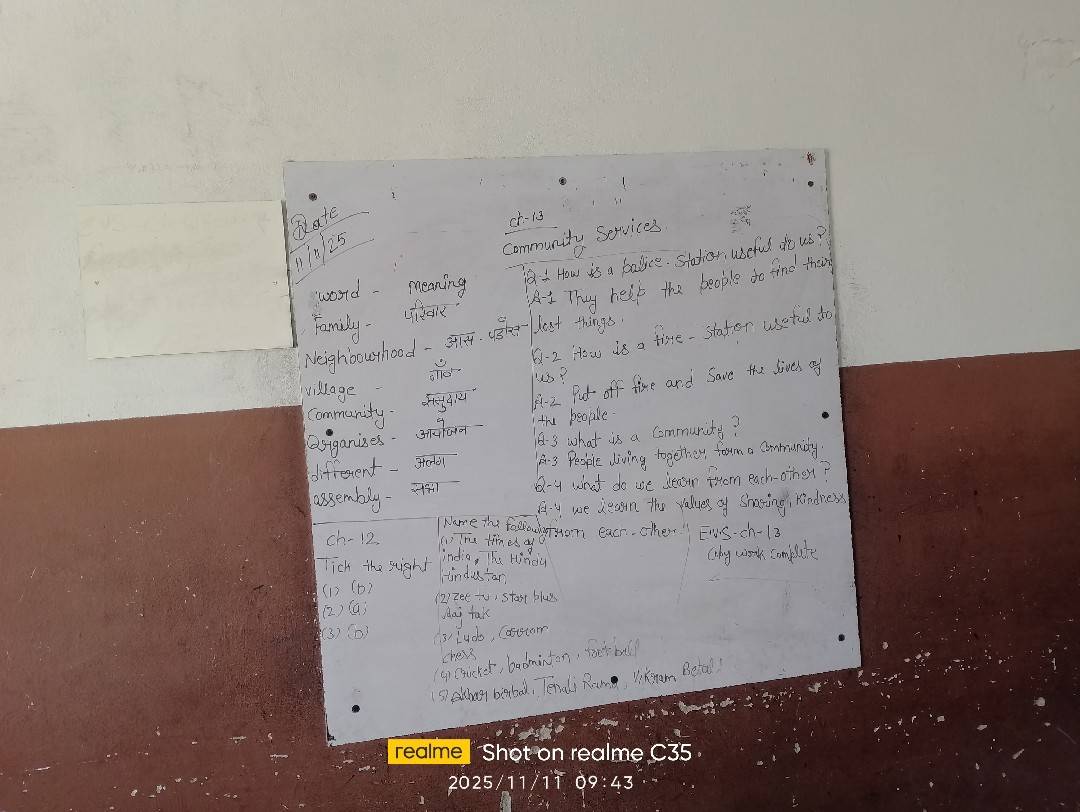 Date
11/11/25
ch-13
Community Services
word - meaning
Family - परिवार
Neighbourhood - आस-पड़ौस
village - गाँव
Community - समुदाय
Organises - आयोजन
different - अलग
assembly - सभा
Q-1 How is a police-station useful to us?
A-1 They help the people to find their
lost things.
Q-2 How is a fire-station useful to
us?
A-2 Put off fire and save the lives of
the people.
Q-3 what is a community?
A-3 People living together form a community.
Q-4 what do we learn from each-other?
A-4 we learn the values of sharing, kindness
from each-other.
ch-12
Tick the right
(1) (b)
(2) (a)
(3) (b)
Name the following
(1) The times of
india, The Hindu
Hindustan
(2) Zee tv, star plus
Aaj tak
(3) Ludo, Carrom
chess
(4) Cricket, badminton, football
(5) Akbar birbal, Tenali Rama, Vikram Betal
EVS-ch-13
Copy work complete
realme Shot on realme C35
2025/11/11 09:43